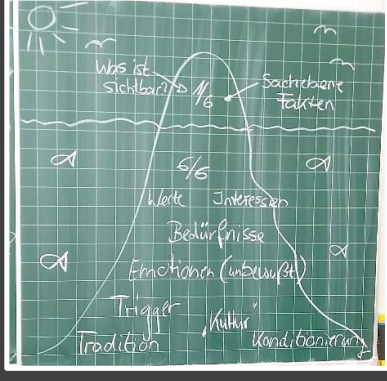 Was ist
sichtbar?
1/6
Sachebene
Fakten
5/6
Werte Interessen
Bedürfnisse
Emotionen (unbewußt)
Trigger
"Kultur"
Tradition
Konditionierung